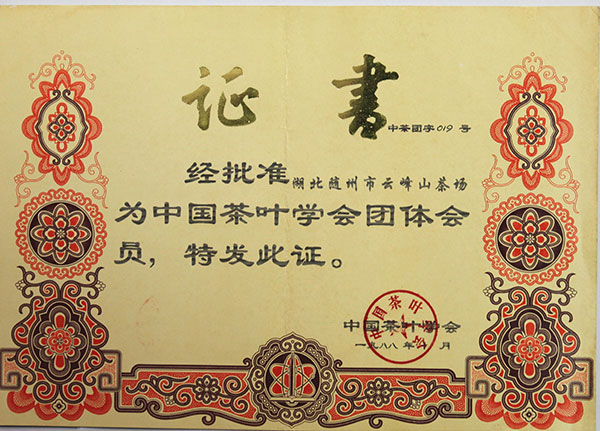 证 书
中茶团字019号
经批准湖北随州市云峰山茶场
为中国茶叶学会团体会
员，特发此证。
中国茶叶学会
一九八八年 月